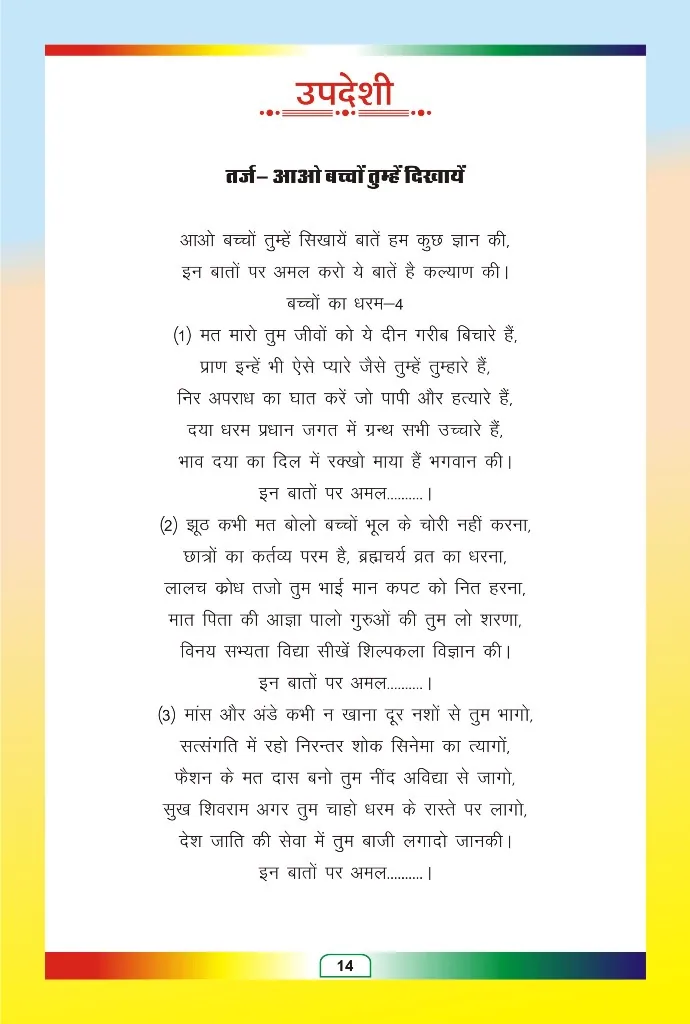 उपदेशी
तर्ज– आओ बच्चों तुम्हें दिखायें
आओ बच्चों तुम्हें सिखायें बातें हम कुछ ज्ञान की,
इन बातों पर अमल करो ये बातें है कल्याण की।
बच्चों का धरम–4
(1) मत मारो तुम जीवों को ये दीन गरीब बिचारे हैं,
प्राण इन्हें भी ऐसे प्यारे जैसे तुम्हें तुम्हारे हैं,
निर अपराध का घात करें जो पापी और हत्यारे हैं,
दया धरम प्रधान जगत में ग्रन्थ सभी उच्चारे हैं,
भाव दया का दिल में रक्खो माया हैं भगवान की।
इन बातों पर अमल..........।
(2) झूठ कभी मत बोलो बच्चों भूल के चोरी नहीं करना,
छात्रों का कर्तव्य परम है, ब्रह्मचर्य व्रत का धरना,
लालच क्रोध तजो तुम भाई मान कपट को नित हरना,
मात पिता की आज्ञा पालो गुरुओं की तुम लो शरणा,
विनय सभ्यता विद्या सीखें शिल्पकला विज्ञान की।
इन बातों पर अमल..........।
(3) मांस और अंडे कभी न खाना दूर नशों से तुम भागो,
सत्संगति में रहो निरन्तर शोक सिनेमा का त्यागों,
फैशन के मत दास बनो तुम नींद अविद्या से जागो,
सुख शिवराम अगर तुम चाहो धरम के रास्ते पर लागो,
देश जाति की सेवा में तुम बाजी लगादो जानकी।
इन बातों पर अमल..........।
14